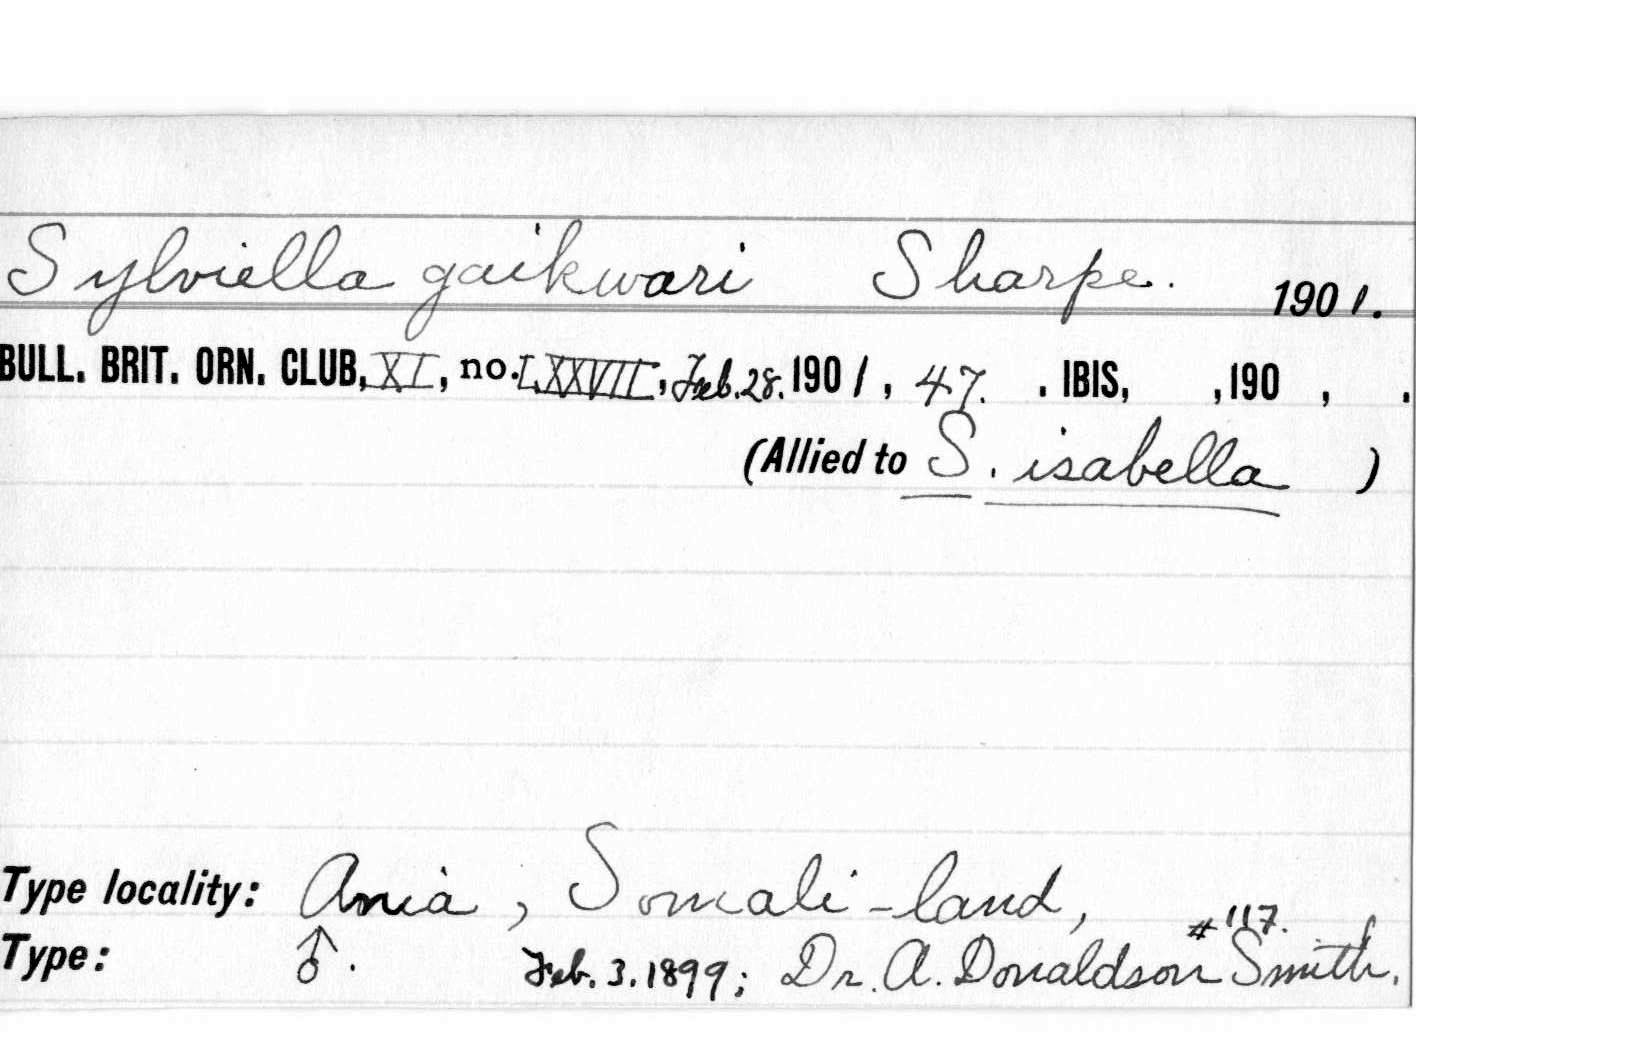 Sylviella gaikwari Sharpe. 1901.
BULL. BRIT. ORN. CLUB, XI, no. LXXVII, Feb. 28. 1901, 47. . IBIS, ,190 , .
(Allied to S. isabella )
Type locality: Ania, Somali-land,
#117.
Type: ♂. Feb. 3. 1899; Dr. A. Donaldson Smith.